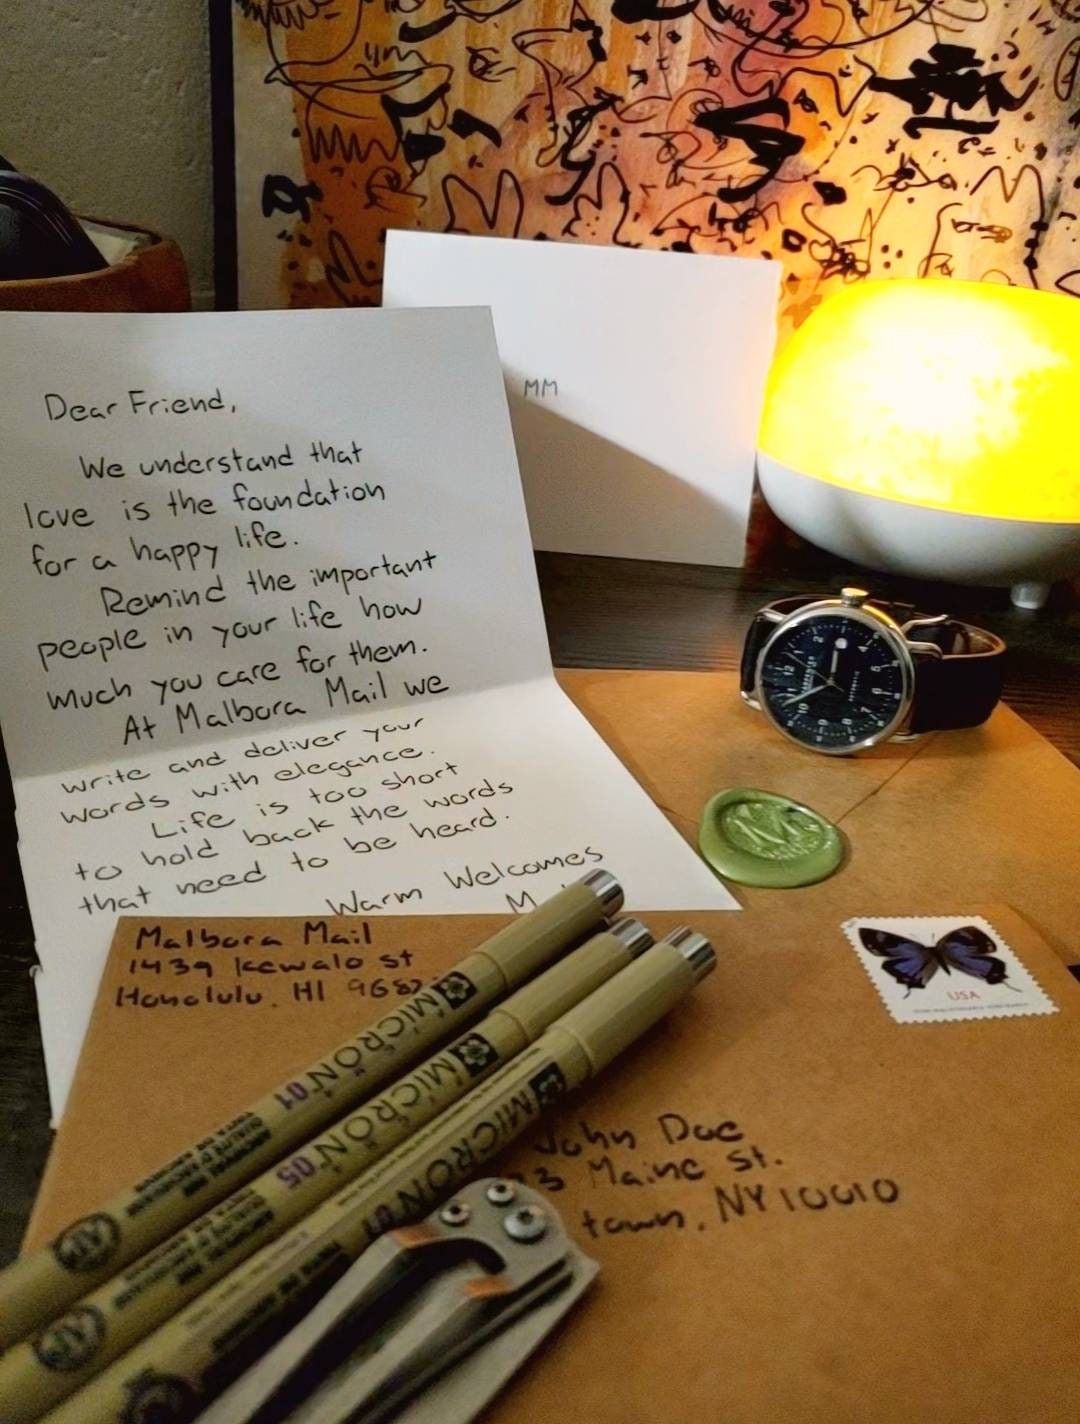 Dear Friend,
We understand that
love is the foundation
for a happy life.
Remind the important
people in your life how
much you care for them.
At Malbora Mail we
write and deliver your
words with elegance.
Life is too short
to hold back the words
that need to be heard.
Warm Welcomes
MM
Malbora Mail
1439 Kewalo st
Honolulu, HI
MICRON 01
MICRON 05
MICRON
John Doe
Maine st.
town, NY 10010
USA